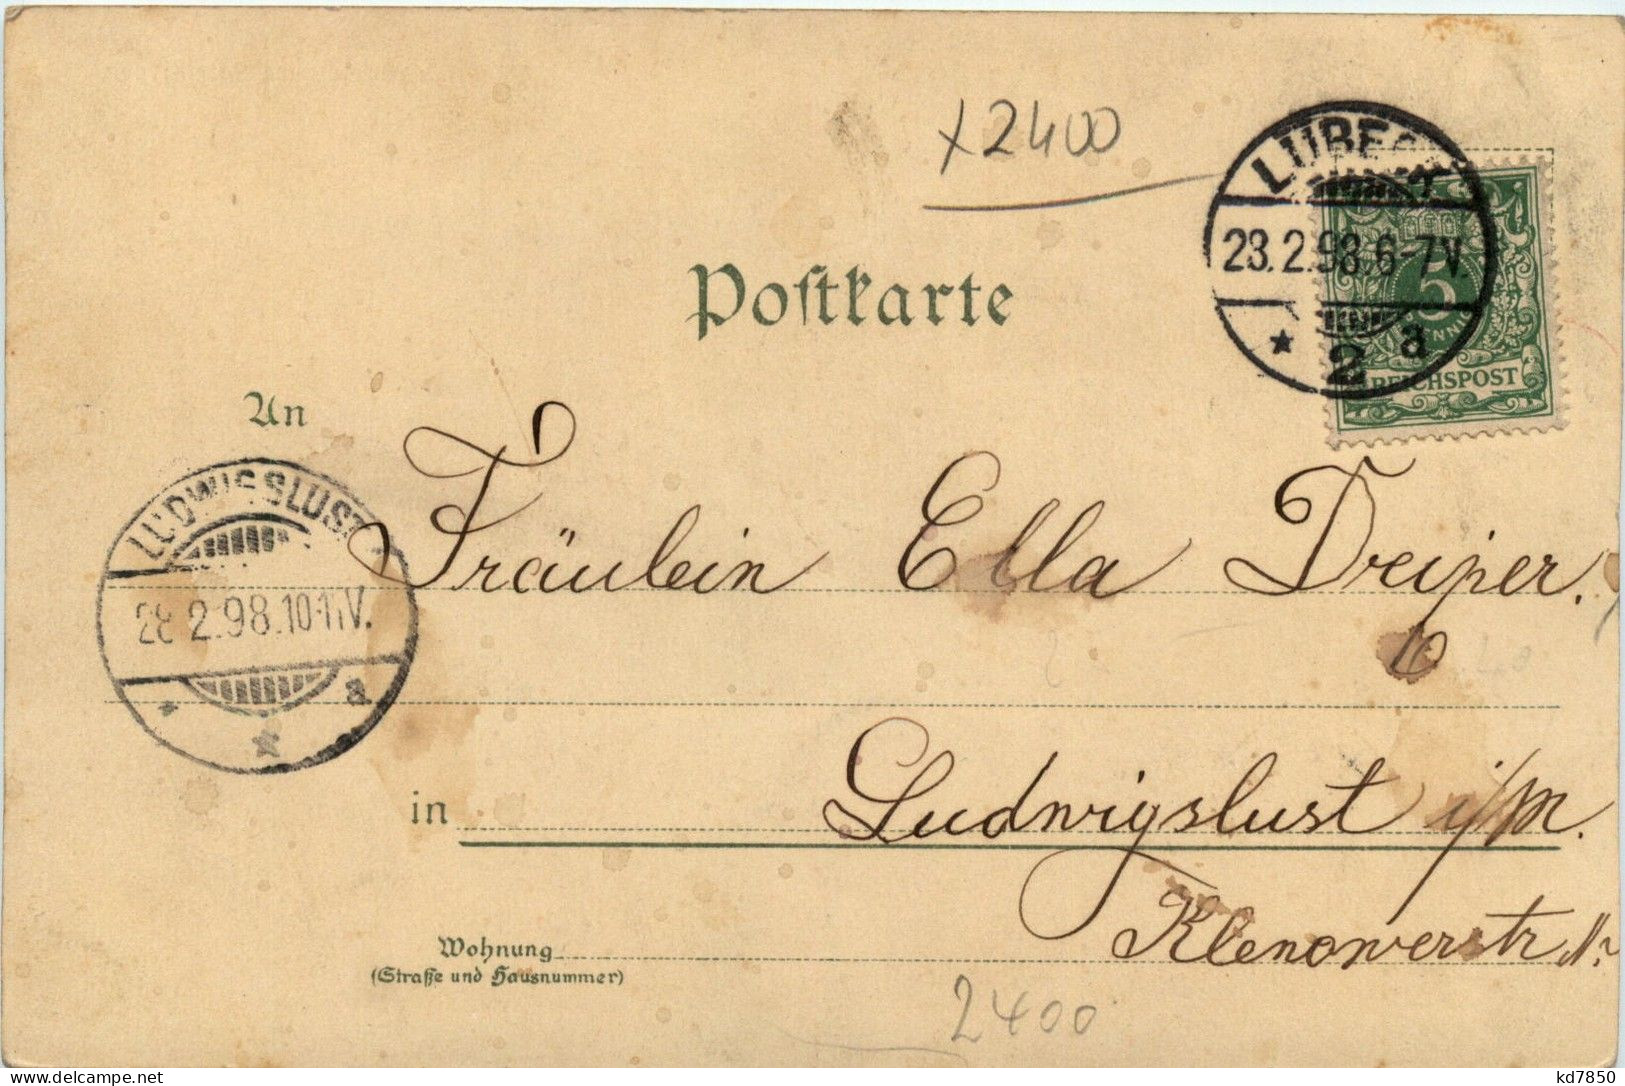 x2400
LÜBECK
23.2.98.6-7V.
2 a
5
PFENNIG
REICHSPOST
Postkarte
An
LUDWIGSLUST
2.98.10-11V.
a
Fräulein Ella Dreiper.
in Ludwigslust i/M.
Klenowerstr Nr
Wohnung
(Straße und Hausnummer)
2400
delcampe.net
kd7850